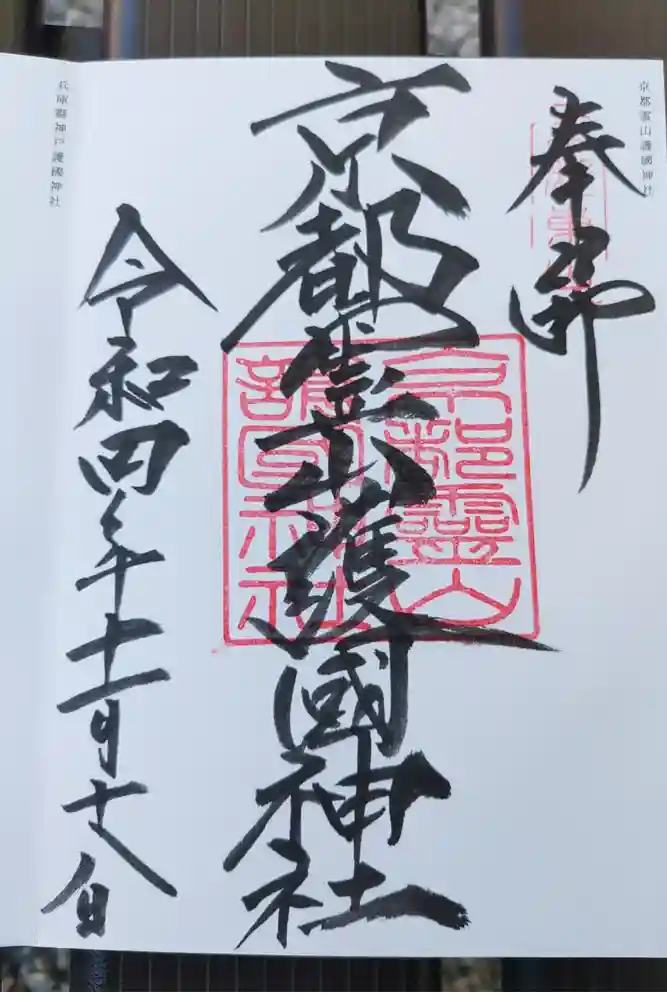 京都靈山護國神社
奉拝
京都霊山護國神社
京都靈山護國神社
令和四年十一月十八日
京都靈山護國神社